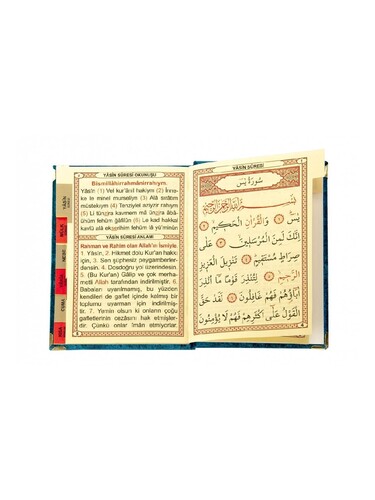 YÂSÎN SÛRESİ OKUNUŞU
Bismillâhirrahmânirrahıym
Yâsîn (1) Vel kur'ânil hakıym (2) İnne-
ke le minel murseliyn (3) Alâ sırâtım
müstekıym (4) Tenziylel azıyzir rahıym
(5) Li tünzira kavmem mâ ünzira âbâ-
ühum fehüm ğâfilûn (6) Le kad hakkal
kavlü alâ ekserihim fehüm lâ yü'minûn
YÂSİN SÛRESİ ANLAMI
Rahman ve Rahîm olan Allah'ın İsmiyle.
1. Yâsîn, 2. Hikmet dolu Kur'an hakkı
için, 3. Sen şüphesiz peygamberlerden-
sin. 4. Dosdoğru yol üzerindesin
5. (Bu Kur'an) Çok güçlü ve çok merha-
metli Allah tarafından indirilmiştir. 6.
Babaları uyarılmamış, bu yüzden
kendileri de gaflet içinde kalmış bir
toplumu uyarman için indirilmiştir.
7. Yemin olsun ki onların çoğu
gafletlerinin cezâsını hak etmişler-
dir. Çünkü onlar îman etmiyorlar.
YÂSİN
MÜLK
NEBE'
CUMA
YÂSİN SÛRESİ
سُورَةُ يٰسٓ
بِسْمِ اللّٰهِ الرَّحْمٰنِ الرَّحِيمِ
يٰسٓ ١ وَالْقُرْاٰنِ الْحَكِيمِ ٢
اِنَّكَ لَمِنَ الْمُرْسَلِينَ ٣ عَلٰى
صِرَاطٍ مُسْتَقِيمٍ ٤ تَنْزِيلَ الْعَزِيزِ
الرَّحِيمِ ٥ لِتُنْذِرَ قَوْمًا مَٓا اُنْذِرَ
اٰبَٓاؤُهُمْ فَهُمْ غَافِلُونَ ٦ لَقَدْ حَقَّ
الْقَوْلُ عَلٰٓى اَكْثَرِهِمْ فَهُمْ لَا يُؤْمِنُونَ